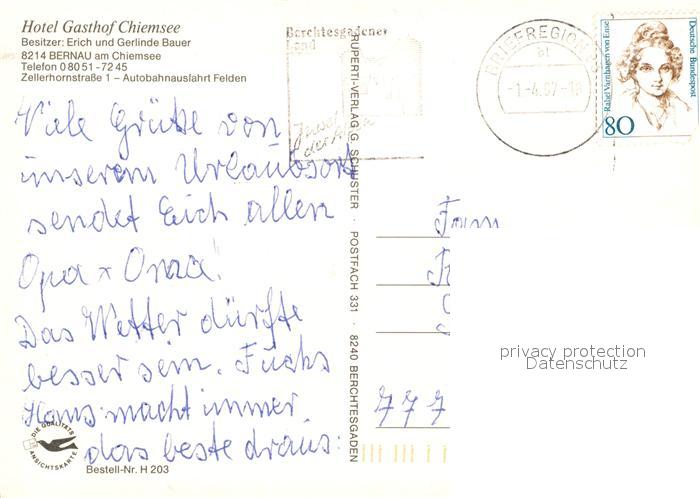 Hotel Gasthof Chiemsee
Besitzer: Erich und Gerlinde Bauer
8214 BERNAU am Chiemsee
Telefon 0 80 51 - 72 45
Zellerhornstraße 1 – Autobahnauslahrt Felden
Viele Grüße von
unserem Urlaubsort
sendet Euch allen
Opa + Oma!
Das Wetter dürfte
besser sein. Fuchs
Hans macht immer
das beste draus.
DIE QUALITÄTS
ANSICHTSKARTE
Bestell-Nr. H 203
RUPERTI-VERLAG G. SCHUSTER · POSTFACH 331 · 8240 BERCHTESGADEN
Berchtesgadener
Land
Insel
der
BRIEFREGION
Deutsche Bundespost
Rahel Varnhagen von Ense
80
Fam
777
privacy protection
Datenschutz